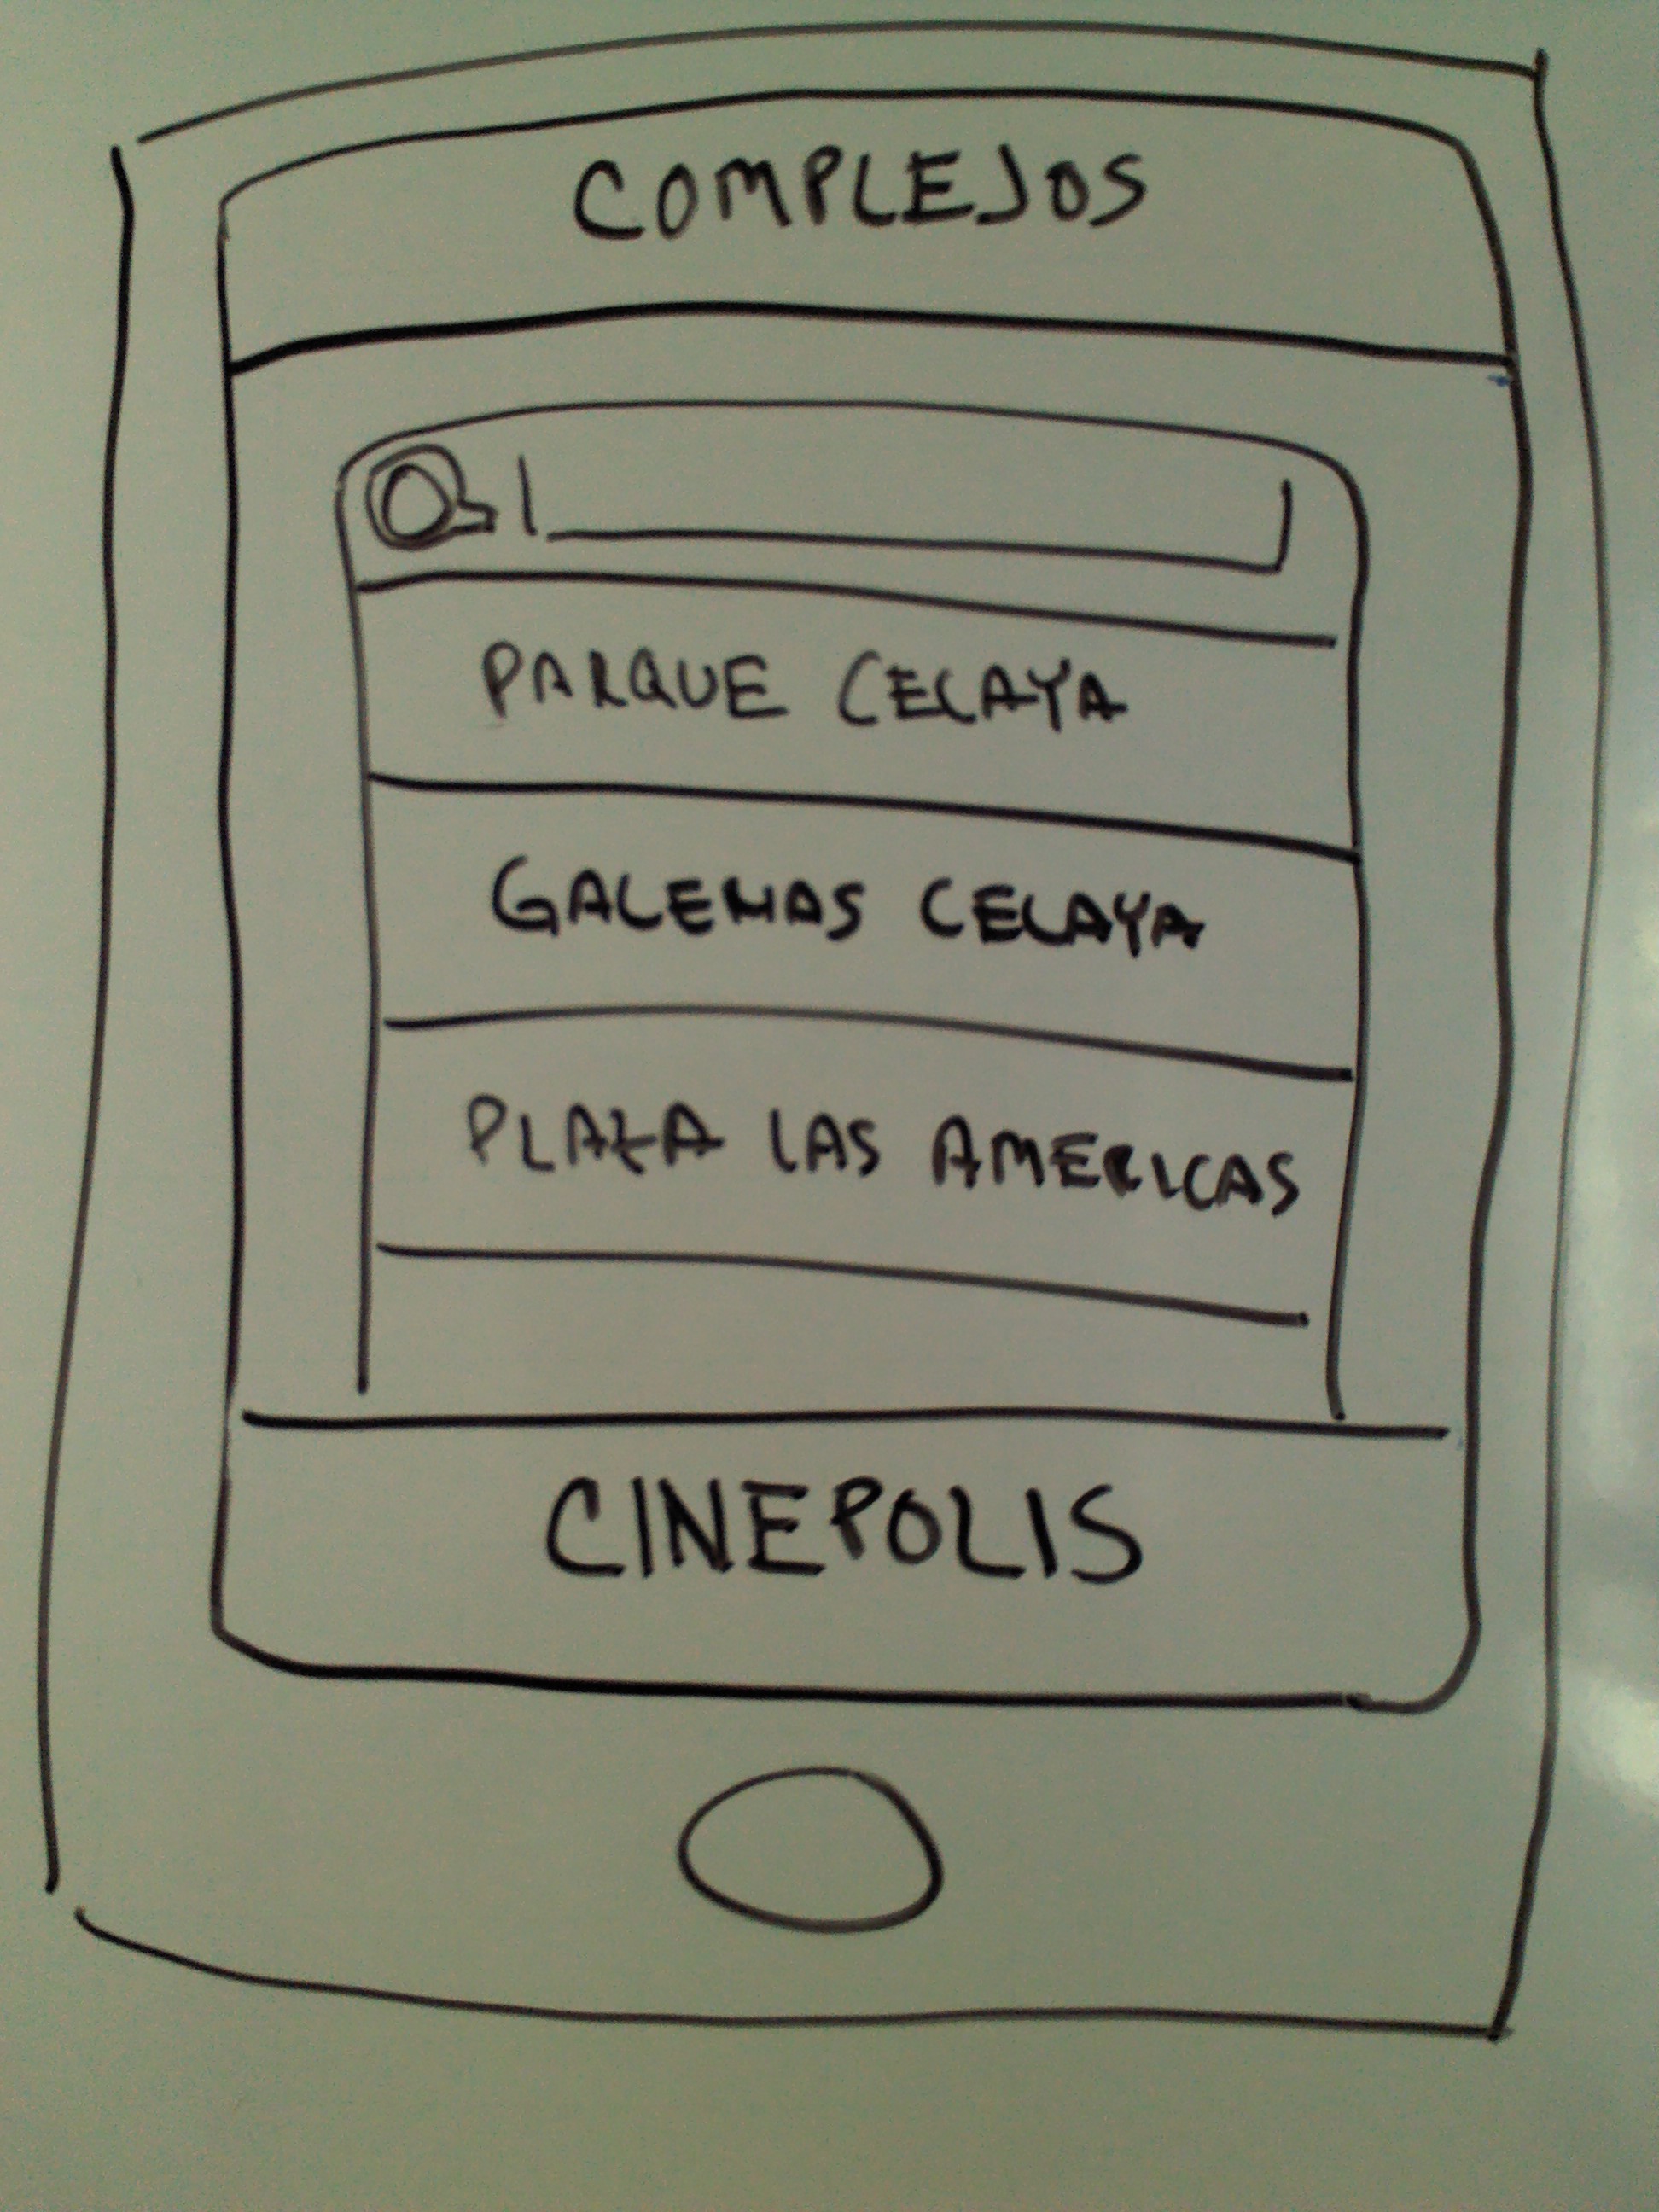 COMPLEJOS
PARQUE CELAYA
GALERIAS CELAYA
PLAZA LAS AMERICAS
CINEPOLIS